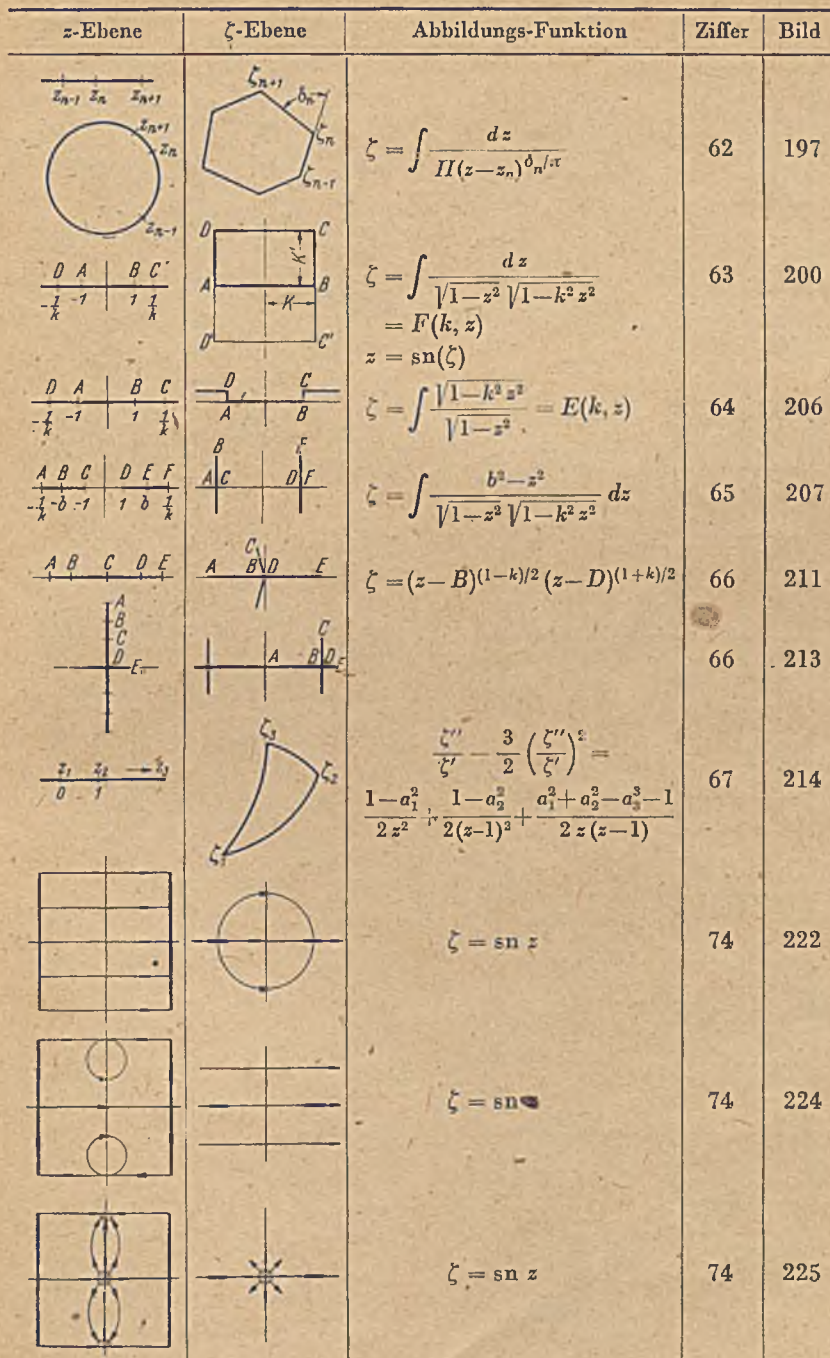 z-Ebene ζ-Ebene Abbildungs-Funktion Ziffer Bild
z_{n-1} z_n z_{n+1}
z_{n+1}
z_n
z_{n-1}
ζ_{n+1}
δ_n
ζ_n
ζ_{n-1}
ζ = ∫ dz / Π(z−z_n)^{δ_n/π} 62 197
D A B C
-1/k -1 1 1/k
D C
K'
A B
K
D' C'
ζ = ∫ dz / √(1−z²) √(1−k² z²) 63 200
= F(k, z)
z = sn(ζ)
D A B C
-1/k -1 1 1/k
D C
A B
ζ = ∫ √(1−k² z²) / √(1−z²) = E(k, z) 64 206
A B C D E F
-1/k -b -1 1 b 1/k
B F
A C D F
ζ = ∫ b²−z² / √(1−z²) √(1−k² z²) dz 65 207
A B C D E
C
A B D E
ζ = (z−B)^{(1−k)/2} (z−D)^{(1+k)/2} 66 211
A
B
C
D E
C
A B D E
66 213
z_1 z_2 → z_3
0 1
ζ_3
ζ_2
ζ_1
ζ''/ζ' − 3/2 (ζ''/ζ')² =
1−a_1²/2z² + 1−a_2²/2(z-1)² + a_1²+a_2²−a_3³−1/2z(z−1) 67 214
ζ = sn z 74 222
ζ = sn 74 224
ζ = sn z 74 225